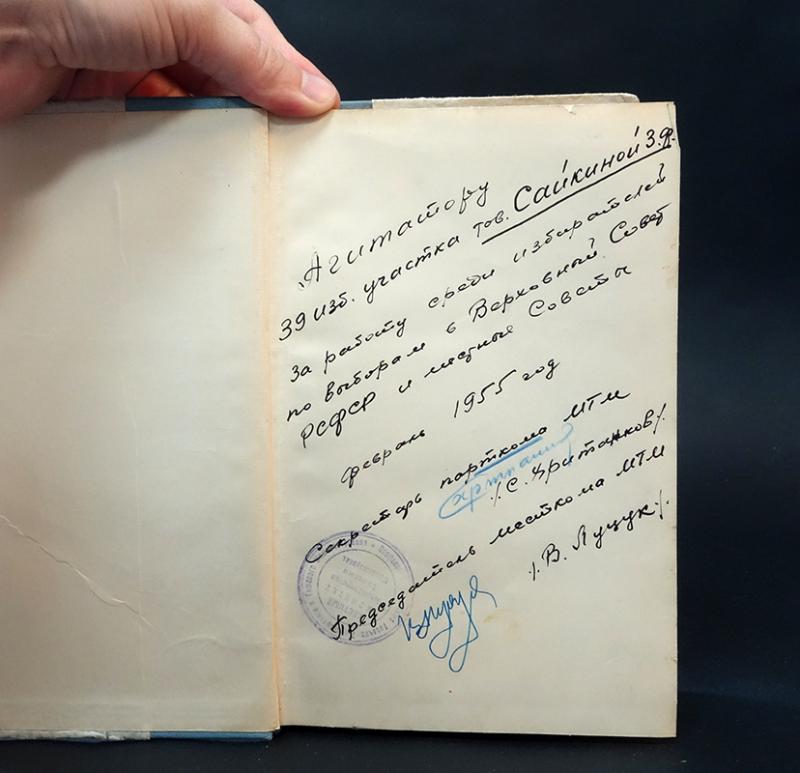 Агитатору
39 изб. участка тов. Сайкиной З.Ф.
за работу среди избирателей
по выборам в Верховный Совет
РСФСР и местные Советы
февраль 1955 год
Секретарь парткома МТМ
/С. Артпанков/.
Председатель месткома МТМ
/. В. Луцук/.